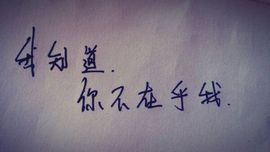 我知道.
你不在乎我.